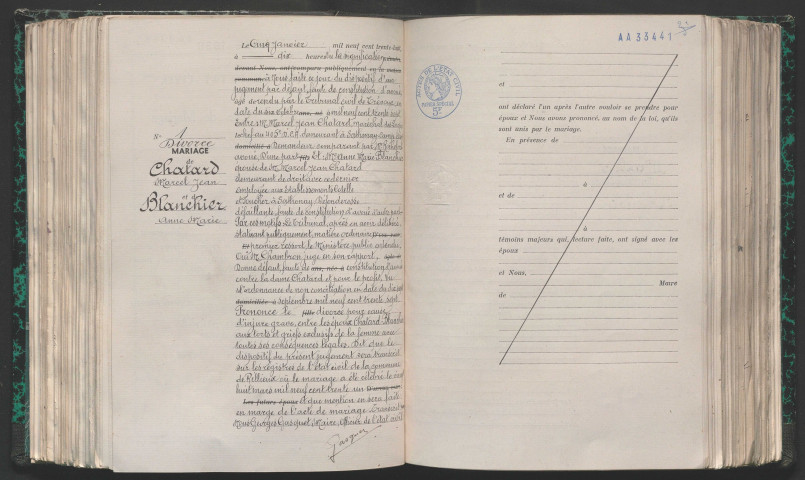 N° 1
Divorce
MARIAGE
de
Chatard
Marcel Jean
et de
Blanchier
Anne Marie
Le Cinq Janvier mil neuf cent trente huit,
à dix heures
devant Nous, ont comparu publiquement en la maison
commune à Nous faite ce jour du dispositif d'un
jugement par défaut, faute de constitution d'avoué
rendu par le Tribunal civil de
date du six octobre mil neuf cent trente sept
Entre M. Marcel Jean Chatard, Maréchal des logis
chef au 405e D.C.A. demeurant à Sathonay Camp,
domicilié à Demandeur comparant par Me
avoué, D'une part fils Et Mme Anne Marie Blanchier
épouse de M. Marcel Jean Chatard
demeurant de droit avec ce dernier
employée aux établissements
Plancher à Sathonay Défenderesse
défaillante faute de constitution d'avoué D'autre part
Par ces motifs : Le Tribunal, après en avoir délibéré
statuant publiquement, matière ordinaire D'une part
Et premier ressort, le Ministère public entendu,
Ouï M. Chambron juge en son rapport
Donne défaut faute de constitution d'avoué
contre la dame Chatard et pour le profit, Vu
l'ordonnance de non conciliation en date du dix
domiciliée à septembre mil neuf cent trente sept
Prononce le fille divorce pour cause
d'injure grave, entre les époux Chatard Blanchier
aux torts et griefs exclusifs de la femme avec
toutes ses conséquences légales. Dit que le
dispositif du présent jugement sera transcrit
sur les registres de l'état civil de la commune
de Pellieux où le mariage a été célébré le
huit mars mil neuf cent trente un D'autre part
Les futurs époux et que mention en sera faite
en marge de l'acte de mariage. Transcrit
Nous Georges Gasquet Maire, Officier de l'état civil
Gasquet
AA33441
TIMBRE DE L'ÉTAT CIVIL
5F
et
ont déclaré l'un après l'autre vouloir se prendre pour
époux et Nous avons prononcé, au nom de la loi, qu'ils
sont unis par le mariage.
En présence de
à
et de
à
témoins majeurs qui, lecture faite, ont signé avec les
époux
et Nous,
Maire
de